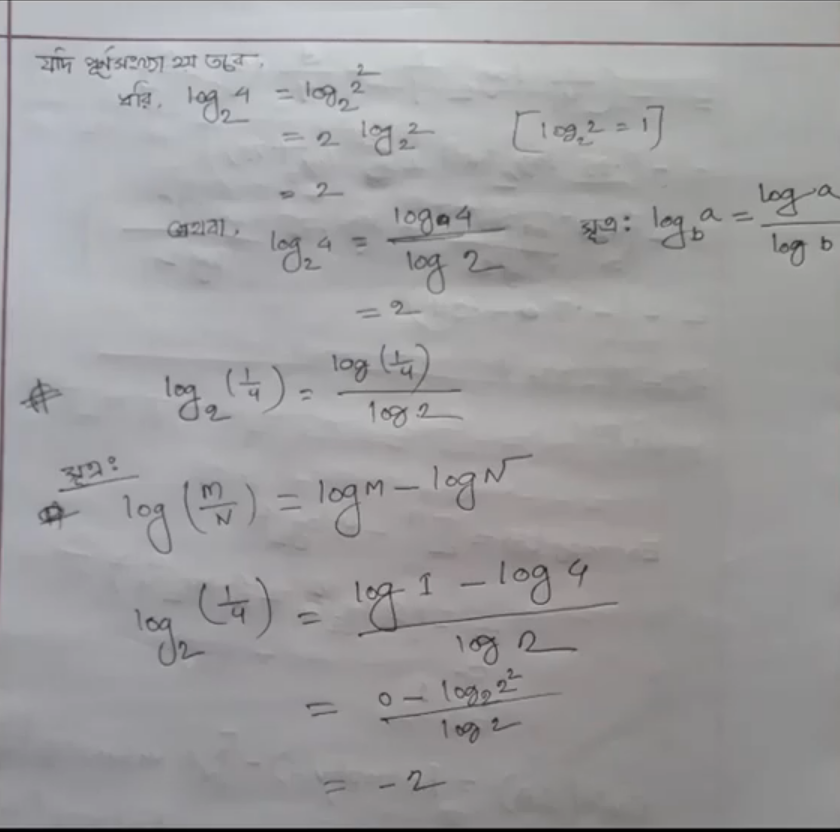 যদি পূর্ণসংখ্যা হয় তবে,
ধরি, log₂4 = log₂2²
= 2 log₂2 [log₂2 = 1]
= 2
অথবা, log₂4 = log 4 / log 2 সূত্র: log_b a = log a / log b
= 2
# log₂(1/4) = log(1/4) / log 2
সূত্র:
log(M/N) = log M − log N
log₂(1/4) = log 1 − log 4 / log 2
= 0 − log₂2² / log 2
= −2